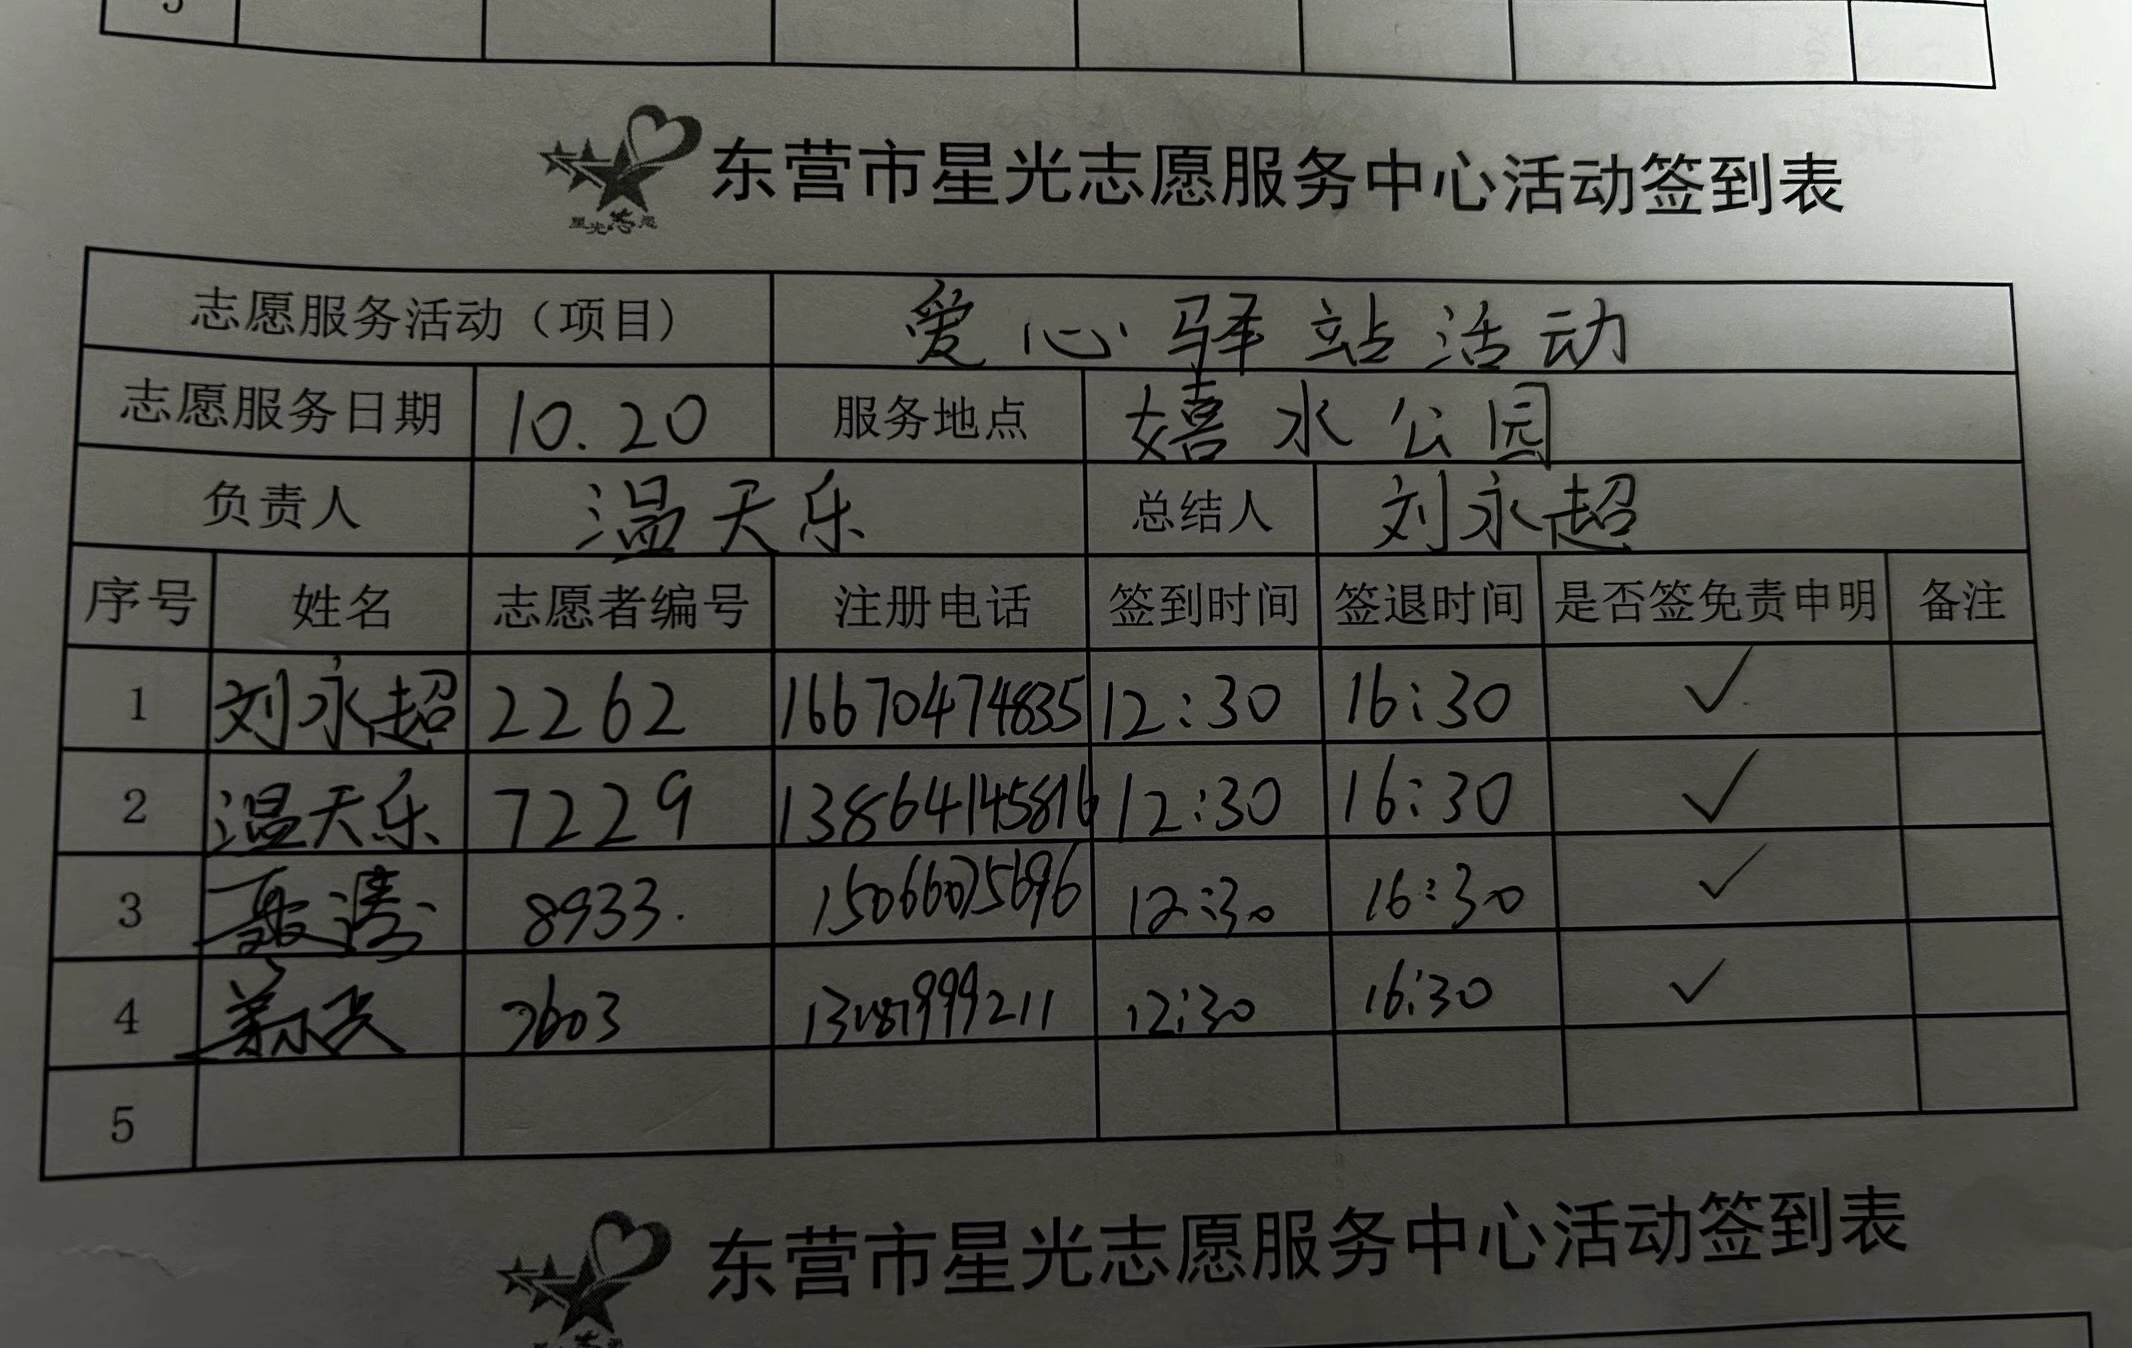 5
星光志愿
东营市星光志愿服务中心活动签到表
志愿服务活动（项目） 爱心驿站活动
志愿服务日期 10.20 服务地点 嬉水公园
负责人 温天乐 总结人 刘永超
序号 姓名 志愿者编号 注册电话 签到时间 签退时间 是否签免责申明 备注
1 刘永超 2262 16670474835 12:30 16:30 ✓
2 温天乐 7229 13864145816 12:30 16:30 ✓
3 8933. 15066075696 12:30 16:30 ✓
4 7603 12:30 16:30 ✓
5
东营市星光志愿服务中心活动签到表